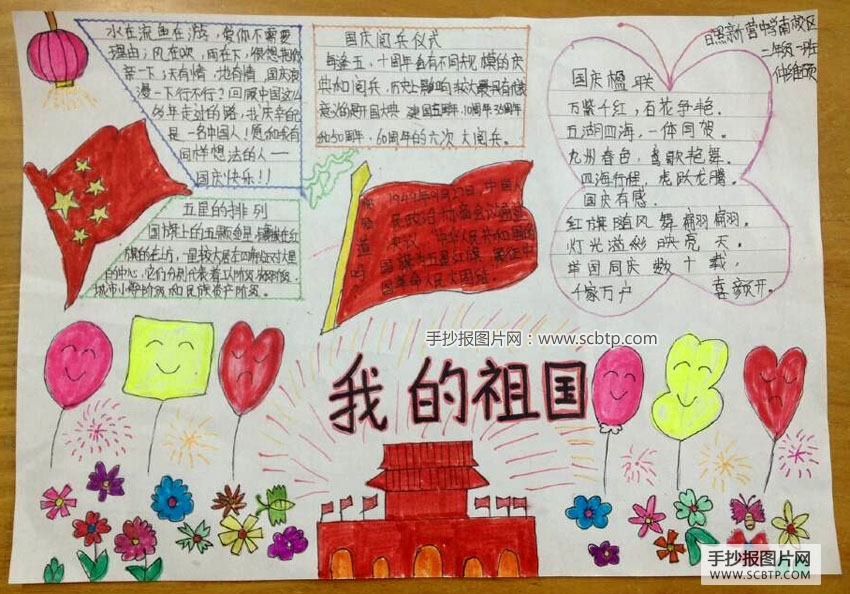 水在流鱼在游，爱你不需要
理由；风在吹，雨在下，很想我你
亲一下；天有情，地有情，国庆浪
漫一下行不行？回顾中国这么
年走过的路，我庆幸自己
是一名中国人！愿和我有
同样想法的人——
国庆快乐！！
国庆阅兵仪式
每逢五、十周年会有不同规模的庆
典和阅兵，历史上影响较大最具有代表
意义的是开国大典，建国五周年、10周年、35周年
和50周年、60周年的六次大阅兵。
日照新营中学南校区
二年级一班
国庆楹联
万紫千红，百花争艳。
五湖四海，一体同贺。
九州春色，莺歌艳舞。
四海行程，虎跃龙腾。
国庆有感。
红旗随风舞翩翩。
灯光溢彩映亮天。
举国同庆数十载，
千家万户 喜颜开。
五星的排列
国旗上的五颗金星
旗的左上方，一星较大居左四星环对大星
的中心，它们分别代表着
城市小资阶级和民族资产阶级。
1949年9月27日，中国人
民政治协商会议通过
决议，中华人民共和国的
国旗为五星红旗，象征中
国革命人民大团结。
手抄报图片网：www.scbtp.com
我的祖国
手抄报图片网
WWW.SCBTP.COM